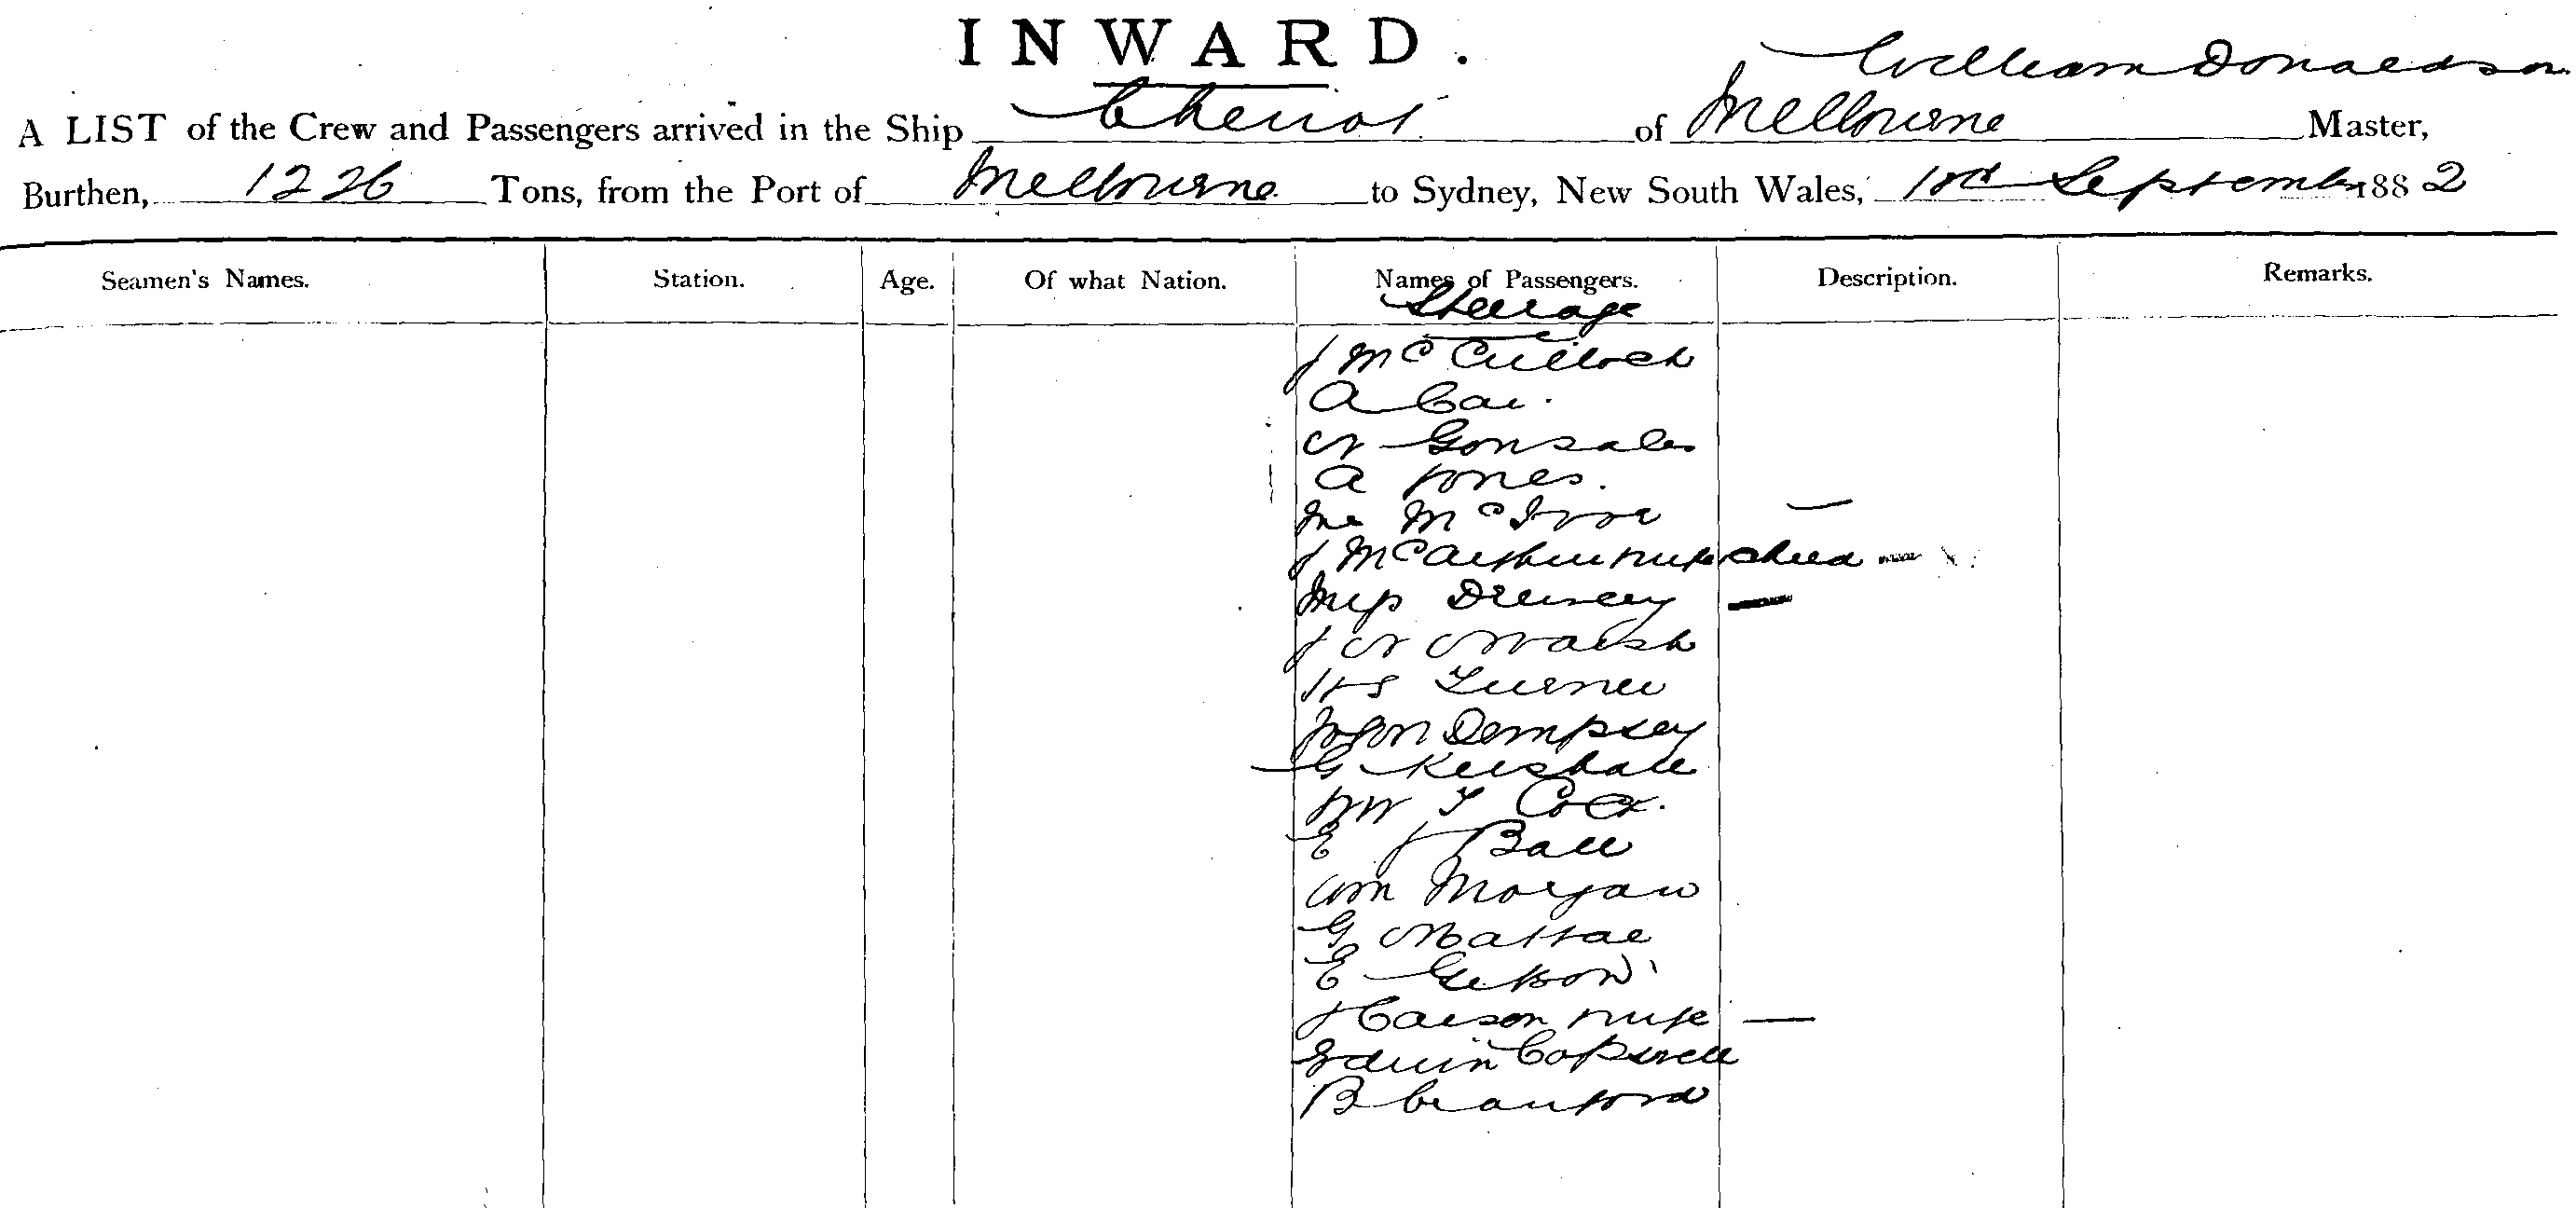 INWARD.
William Donaldson
A LIST of the Crew and Passengers arrived in the Ship Cheviot of Melbourne Master,
Burthen, 1226 Tons, from the Port of Melbourne to Sydney, New South Wales, September 1882
Seamen's Names. Station. Age. Of what Nation. Names of Passengers. Description. Remarks.
Steerage
J McCulloch
A
W Gonsales
A Jones.
McIvor
J McArthur wife child —
—
J W Walsh
Turner
John Dempsey
G Kershaw
T Cox.
E J Ball
Wm Morgan
G
E Gibson
J Carson wife —
Edwin Copswell
B Cranford